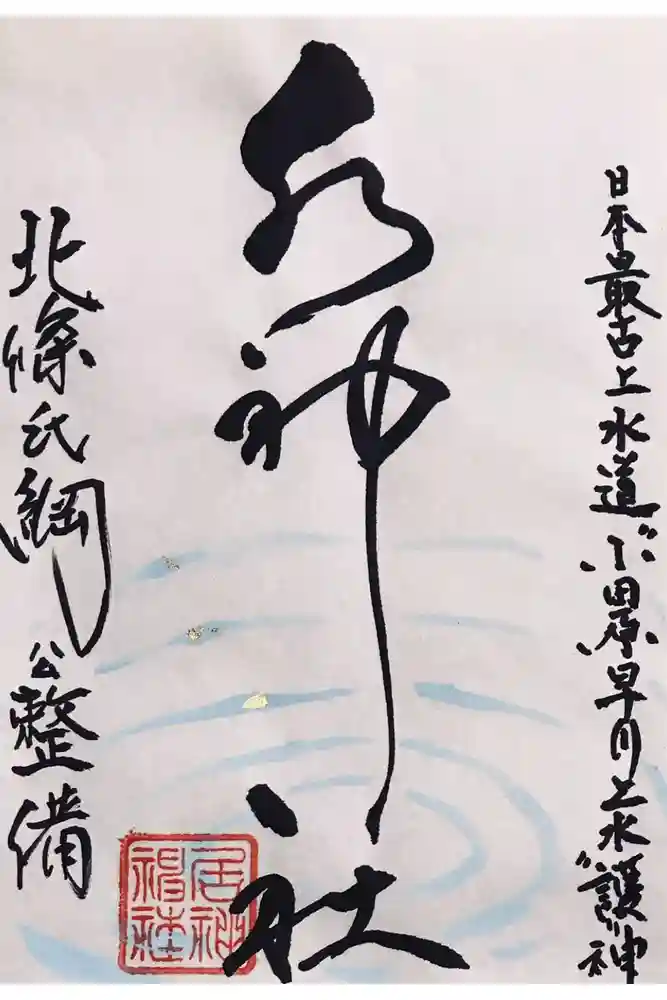 日本最古上水道"小田原早川上水"護神
水神社
北條氏綱公整備
居神神社